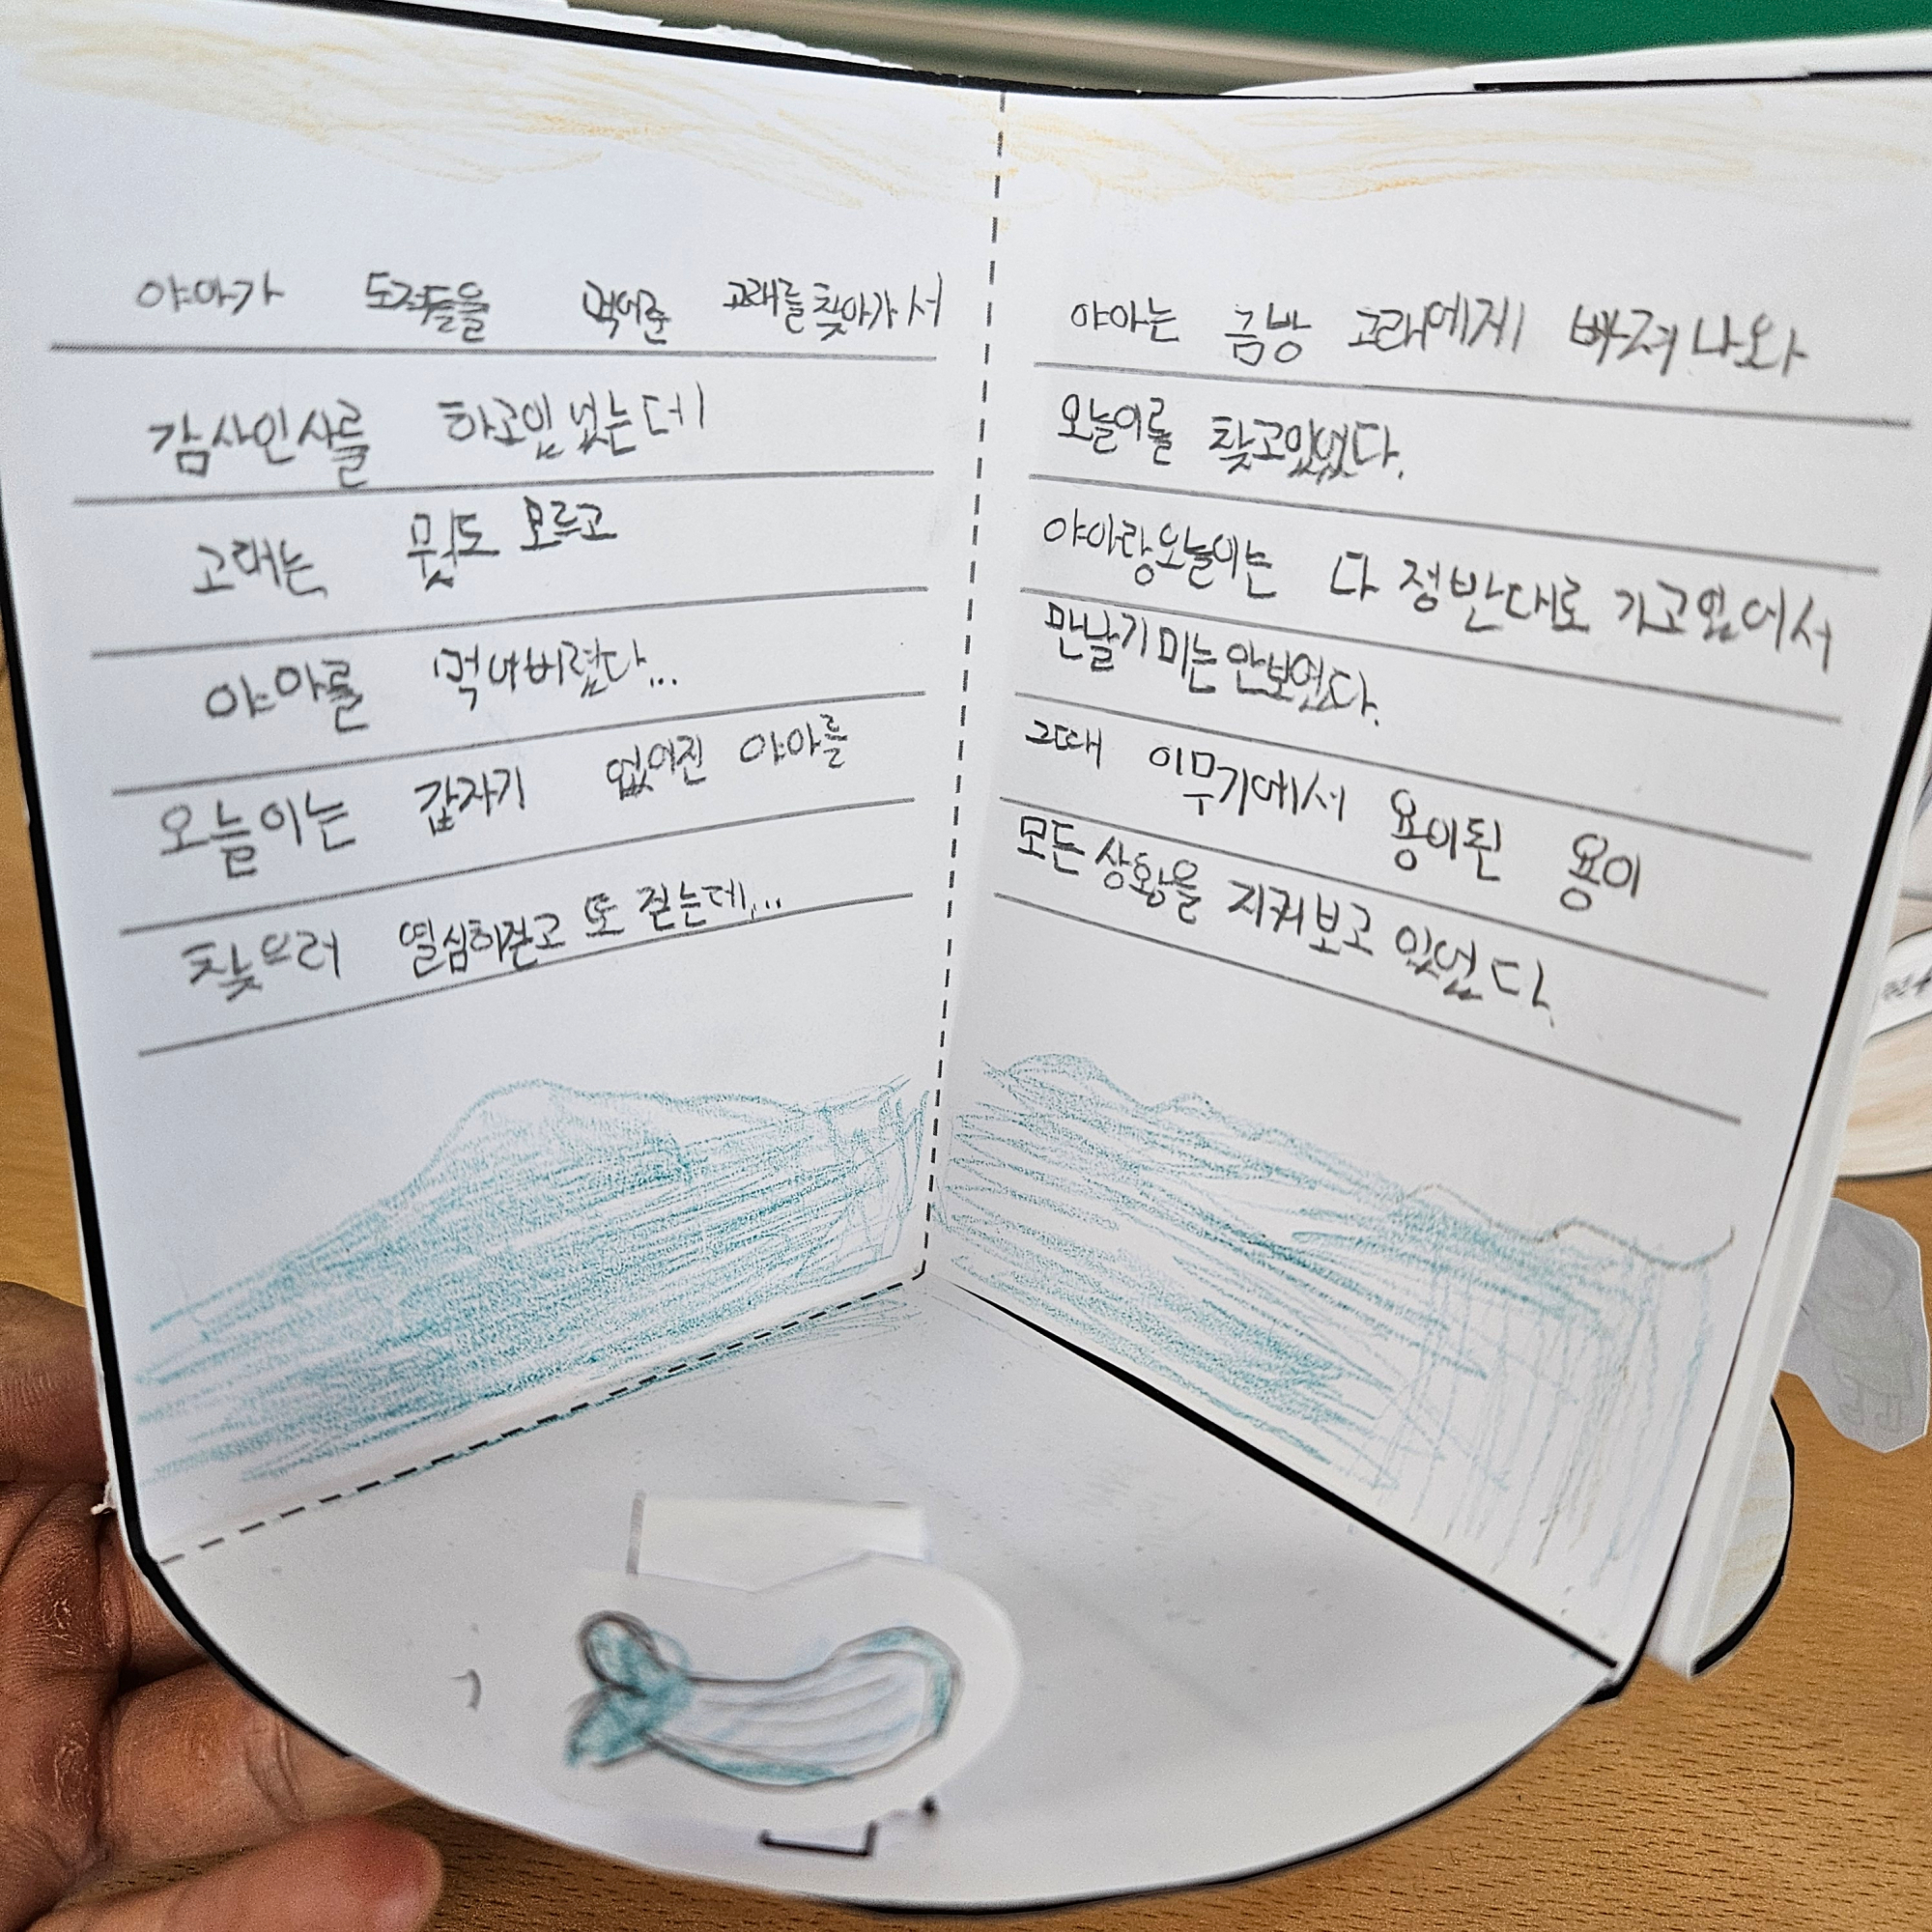 야아가 도적들을 먹어준 고래를 찾아가서
감사인사를 하고있었는데
고래는 뭣도 모르고
야아를 먹어버렸다...
오늘이는 갑자기 없어진 야아를
찾으러 열심히걷고 또 걷는데...
야아는 금방 고래에게 빠져나와
오늘이를 찾고있었다.
야아랑오늘이는 다 정반대로 가고있어서
만날기미는안보였다.
그때 이무기에서 용이된 용이
모든상황을 지켜보고 있었다.